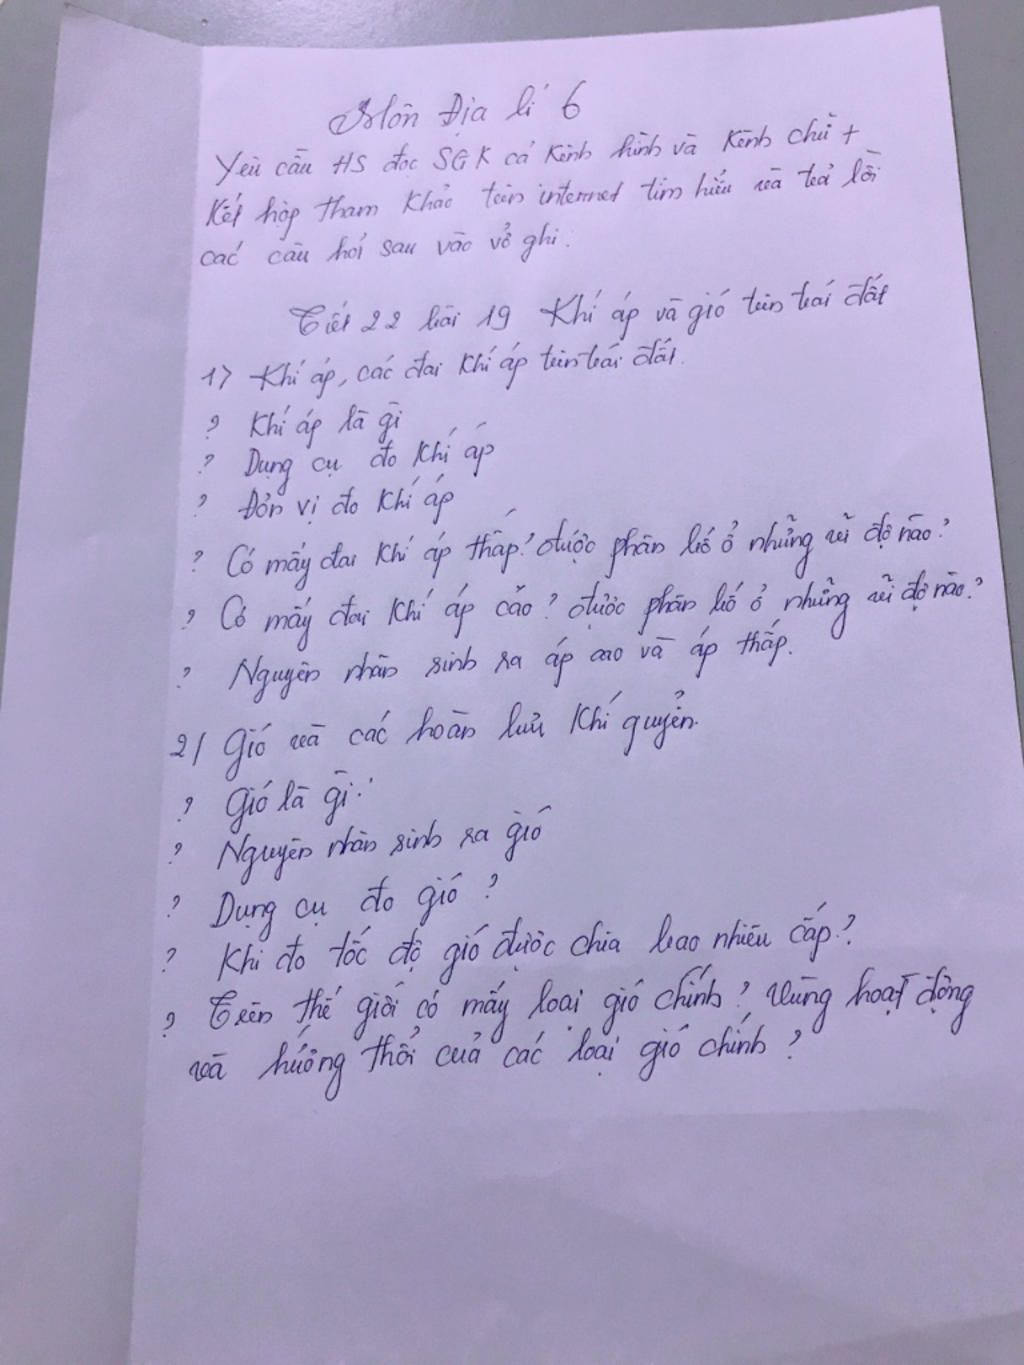 Môn Địa lí 6
Yêu cầu HS đọc SGK cả kênh hình và kênh chữ +
Kết hợp tham khảo trên internet tìm hiểu và trả lời
các câu hỏi sau vào vở ghi.
Tiết 22 bài 19 Khí áp và gió trên trái đất
1) Khí áp, các đai khí áp trên trái đất.
? Khí áp là gì
? Dụng cụ đo khí áp
? Đơn vị đo khí áp
? Có mấy đai khí áp thấp? được phân bố ở những vĩ độ nào?
? Có mấy đai khí áp cao? được phân bố ở những vĩ độ nào?
? Nguyên nhân sinh ra áp cao và áp thấp.
2/ Gió và các hoàn lưu khí quyển.
? Gió là gì?
? Nguyên nhân sinh ra gió
? Dụng cụ đo gió ?
? Khi đo tốc độ gió được chia bao nhiêu cấp?
? Trên thế giới có mấy loại gió chính? Vùng hoạt động
và hướng thổi của các loại gió chính ?